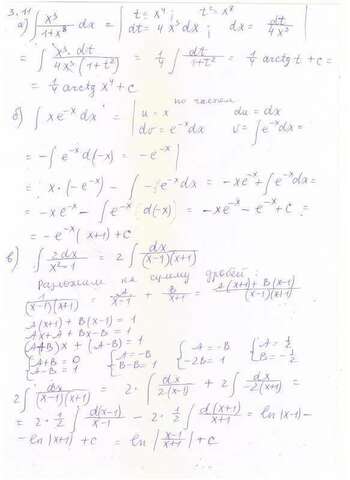 3.11
а) ∫ x³/(1+x⁸) dx = | t = x⁴; t² = x⁸
dt = 4x³dx; dx = dt/4x³ |
= ∫ x³·dt/(4x³(1+t²)) = 1/4 ∫ dt/(1+t²) = 1/4 arctg t + c =
= 1/4 arctg x⁴ + c
по частям
б) ∫ x e⁻ˣ dx = | u = x du = dx
dv = e⁻ˣdx v = ∫ e⁻ˣdx =
= -∫ e⁻ˣ d(-x) = -e⁻ˣ |
= x·(-e⁻ˣ) - ∫ -e⁻ˣ dx = -xe⁻ˣ + ∫ e⁻ˣ dx =
= -xe⁻ˣ - ∫ e⁻ˣ d(-x) = -xe⁻ˣ - e⁻ˣ + c =
= -e⁻ˣ (x+1) + c
в) ∫ 2dx/(x²-1) = 2 ∫ dx/((x-1)(x+1))
Разложим на сумму дробей:
1/((x-1)(x+1)) = A/(x-1) + B/(x+1) = (A(x+1) + B(x-1))/((x-1)(x+1))
A(x+1) + B(x-1) = 1
Ax + A + Bx - B = 1
(A+B)x + (A-B) = 1
{ A+B = 0 { A = -B { A = -B { A = 1/2
A-B = 1 -B-B = 1 -2B = 1 B = -1/2
2 ∫ dx/((x-1)(x+1)) = 2· ∫ dx/(2(x-1)) + 2 ∫ dx/(2(x+1)) =
= 2·1/2 ∫ d(x-1)/(x-1) - 2·1/2 ∫ d(x+1)/(x+1) = ln|x-1| -
- ln|x+1| + c = ln |(x-1)/(x+1)| + c